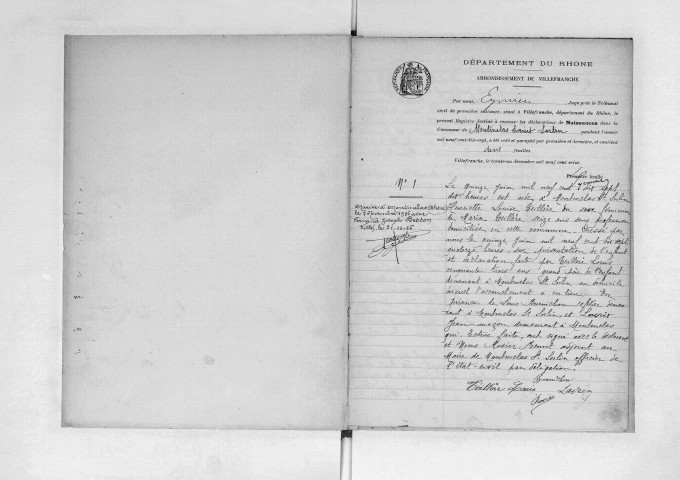 DÉPARTEMENT DU RHONE
ARRONDISSEMENT DE VILLEFRANCHE
Par nous, Juge près le Tribunal
civil de première instance, séant à Villefranche, département du Rhône, le
présent Registre destiné à recevoir les déclarations de Naissances dans la
Commune de Montmelas Saint Sorlin pendant l'année
mil neuf cent dix-sept, a été coté et paraphé par première et dernière, et contient
deux feuilles
Villefranche, le trente-un décembre mil neuf cent seize.
Première feuille
N° 1
Le quinze Juin mil neuf cent dix sept
dix heures est née, à Montmelas St Sorlin
Henriette Louise Teillère du sexe féminin
de Maria Teillère seize ans sans profession
domiciliée en cette commune. Dressé par
nous le quinze Juin mil neuf cent dix sept
quatorze heures sur présentation de l'enfant
et déclaration faite par Teillère Louis
cinquante trois ans grand père de l'enfant
demeurant à Montmelas St Sorlin au domicile
duquel l'accouchement a eu lieu. En
présence de Louis
à Montmelas St Sorlin, et
Jean maçon demeurant à Montmelas
qui, lecture faite, ont signé avec le déclarant
et Nous Benoit adjoint au
Maire de Montmelas St Sorlin officier de
l'état-civil par délégation.
Mariée à Montmelas (Rhône)
le
Joseph
Teillère Louis